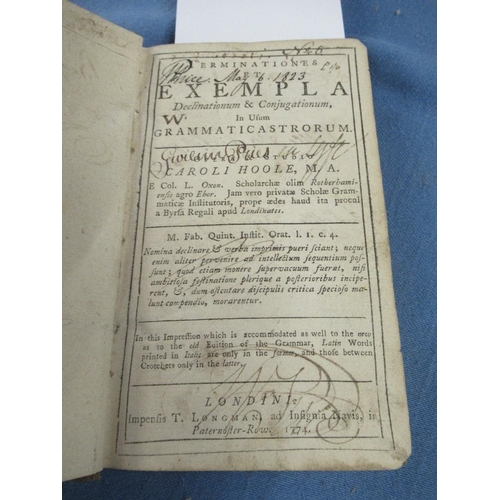 TERMINATIONES
ET
May 6. 1823
EXEMPLA
Declinationum & Conjugationum,
In Usum
W.
GRAMMATICASTRORUM.
CAROLI HOOLE, M. A.
E Col. L. Oxon. Scholarchæ olim Rotherhami-
ensis agro Ebor. Jam vero privatæ Scholæ Gram-
maticæ Institutoris, prope ædes haud ita procul
a Byrsa Regali apud Londinates.
M. Fab. Quint. Instit. Orat. l. 1. c. 4.
Nomina declinare & verba imprimis pueri sciant; neque
enim aliter pervenire ad intellectum sequentium pos-
sunt; quod etiam monere supervacuum fuerat, nisi
ambitiosa festinatione plerique a posterioribus incipe-
rent, &, dum ostentare discipulis critica speciosa ma-
lunt compendio, morarentur.
In this Impression which is accommodated as well to the new
as to the old Edition of the Grammar, Latin Words
printed in Italic are only in the former, and those between
Crotchets only in the latter.
LONDINI:
Impensis T. LONGMAN, ad Insignia Navis, in
Paternoster-Row. 1774.